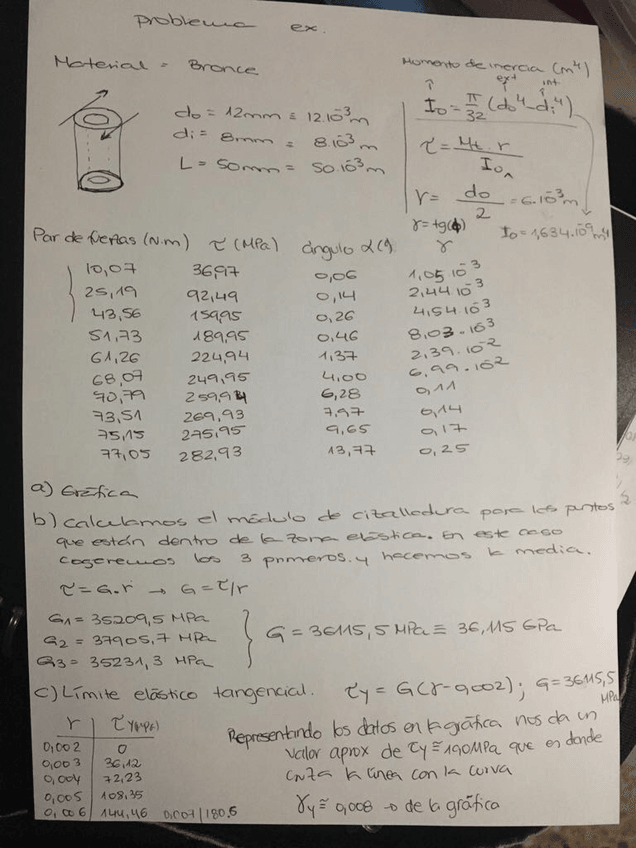 Problema ex.
Material = Bronce
Momento de inercia (m⁴)
ext int.
do = 12mm ≡ 12.10⁻³m
di = 8mm = 8.10⁻³m
L = 50mm = 50.10⁻³m
I₀ = π/32 (do⁴ - di⁴)
τ = Mt . r / I₀
r = do/2 = 6.10⁻³m
γ = tg(ϕ)
I₀ = 1,634.10⁻⁹ m⁴
Par de fuerzas (N.m) τ (MPa) ángulo α(°) γ
10,07 36,97 0,06 1,05.10⁻³
25,19 92,49 0,14 2,44.10⁻³
43,56 159,95 0,26 4,54.10⁻³
51,73 189,95 0,46 8,03.10⁻³
61,26 224,94 1,37 2,39.10⁻²
68,07 249,95 4,00 6,99.10⁻²
70,79 259,94 6,28 0,11
73,51 269,93 7,97 0,14
75,15 275,95 9,65 0,17
77,05 282,93 13,77 0,25
a) Gráfica
b) Calculamos el módulo de cizalladura para los puntos
que están dentro de la zona elástica. En este caso
cogeremos los 3 primeros. y hacemos la media.
τ = G.r → G = τ/r
G1 = 35209,5 MPa
G2 = 37905,7 MPa
G3 = 35231,3 MPa
G = 36115,5 MPa ≡ 36,115 GPa
c) Límite elástico tangencial. τy = G(γ-0,002); G=36115,5 MPa
r τy(MPa)
0,002 0
0,003 36,12
0,004 72,23
0,005 108,35
0,006 144,46 0,007 | 180,5
Representando los datos en la gráfica nos da un
valor aprox de τy ≅ 190MPa que es donde
cruza la línea con la curva
γy ≅ 0,008 → de la gráfica